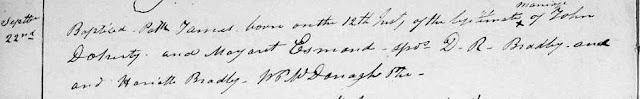 Septbr Baptised Patk James born on the 12th Inst, of the legitimate marriage x of John
22nd Doherty and Margaret Esmond - spors D. R. Bradly and
and Harriette Bradly. WP McDonagh Ptr -